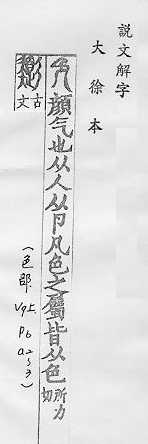 說文解字
大徐本
色 顏气也从人从卪凡色之屬皆从色 所力切
古文
(色部. V9上. P6 a2~3)